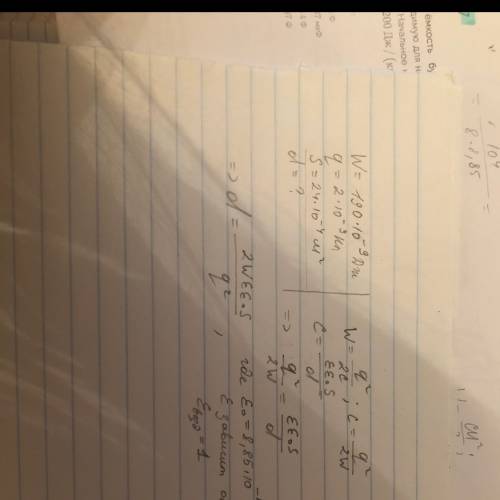 ёмкость б
димую для н
Начальное
200 Дж/(кг
104
= 8·8,85 =
см²
W = 190·10⁻⁹ Дж
q = 2·10⁻⁹ Кл
S = 24·10⁻⁴ м²
d = ?
W = q²/2C ; C = q²/2W
C = εε₀S/d
=> q²/2W = εε₀S/d
=> d = 2Wεε₀S/q² , где ε₀ = 8,85·10
ε зависит
= 1